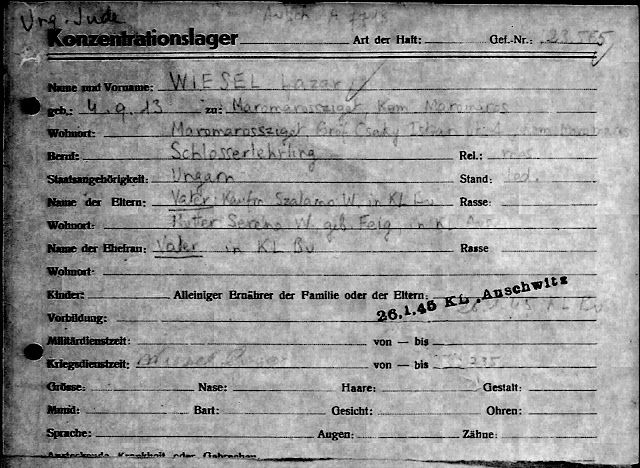 Ung. Jude Ausch A 7713
Konzentrationslager Art der Haft: Gef.-Nr.:
Name und Vorname: WIESEL Lazar
geb.: 4.9.13 zu: Maromarossziget, Kom Maromaros
Wohnort: Maromarossziget
Beruf: Schlosserlehrling Rel.: mos.
Staatsangehörigkeit: Ungarn Stand: led.
Name der Eltern: Vater: Kaufm Szalamo W. in KL Bu Rasse:
Wohnort: Mutter Serena W. geb. Feig in KL
Name der Ehefrau: Vater in KL Bu Rasse
Wohnort:
Kinder: Alleiniger Ernährer der Familie oder der Eltern:
26.1.45 KL. Auschwitz
Vorbildung:
Militärdienstzeit: von — bis
Kriegsdienstzeit: von — bis
Grösse: Nase: Haare: Gestalt:
Mund: Bart: Gesicht: Ohren:
Sprache: Augen: Zähne:
Ansteckende Krankheit oder Gebrechen: